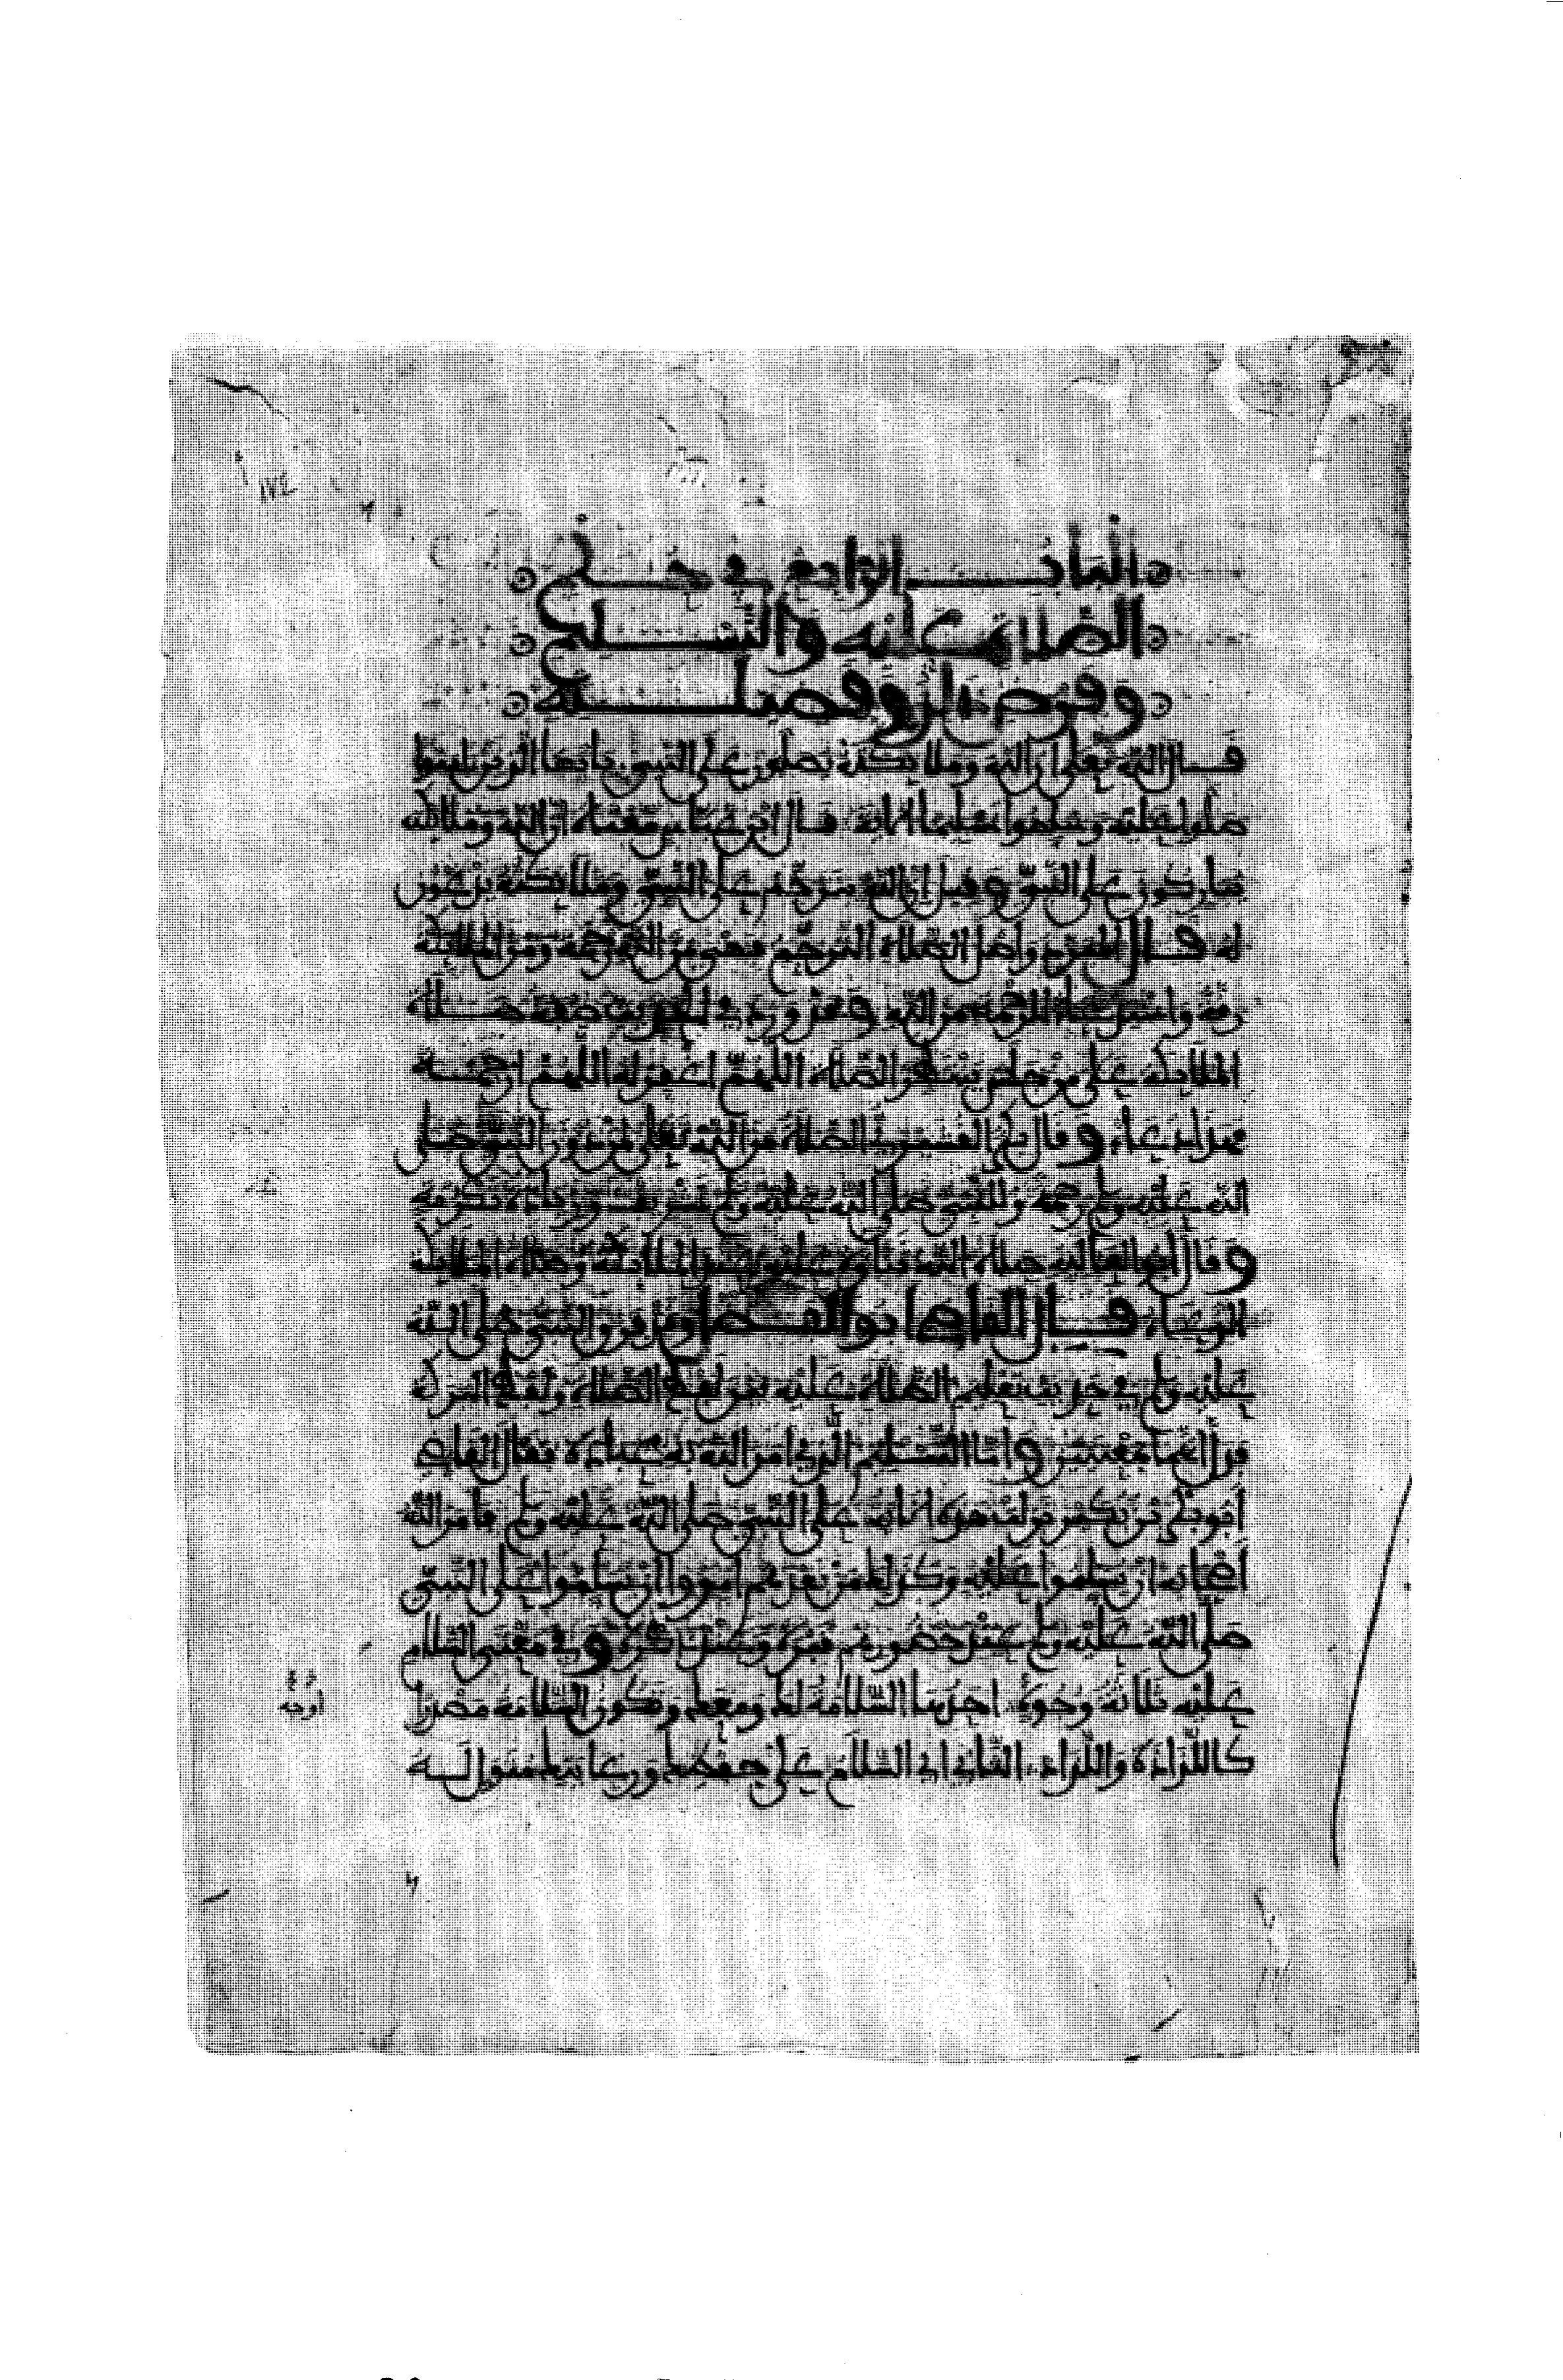 ١٧٤
الباب الرابع في حكم
الصلاة عليه والتسليم
وفرض ذلك وفضيلته
قال الله تعلى ان الله وملائكته يصلون على النبي يأيها الذين ءامنوا
صلوا عليه وسلموا تسليما الاية قال ابن عباس معناه ان الله وملائكته
يباركون على النبي وقيل ان الله يترحم على النبي وملائكته يدعون
له قال المبرد واصل الصلاة الترحم فهي من الله رحمة ومن الملائكة
رقة واستدعاء للرحمة من الله وقد ورد في الحديث صفة صلاة
الملائكة على من جلس ينتظر الصلاة اللهم اغفر له اللهم ارحمه
فهذا دعاء وقال بكر القشيري الصلاة من الله تعلى لمن دون النبي صلى
الله عليه وسلم رحمة وللنبي صلى الله عليه وسلم تشريف وزيادة تكرمة
وقال ابو العالية صلاة الله ثناؤه عليه عند الملائكة وصلاة الملائكة
الدعاء قال القاضي ابو الفضل وقد فرق النبي صلى الله
عليه وسلم في حديث تعليم الصلاة عليه بين لفظ الصلاة ولفظ البركة
فدل انهما بمعنيين واما التسليم الذي امر الله به عباده فقال القاضي
ابو بكر بن بكير نزلت هذه الاية على النبي صلى الله عليه وسلم فامر الله
اصحابه ان يسلموا عليه وكذلك من بعدهم امروا ان يسلموا على النبي
صلى الله عليه وسلم عند حضورهم قبره وعند ذكره وفي معنى السلام
عليه ثلاثة وجوه احدها السلامة لك ومعك وتكون السلامة مصدرا
كاللذاذة واللذاذ الثاني اي السلام على حفظك ورعايتك متول له
اوجه